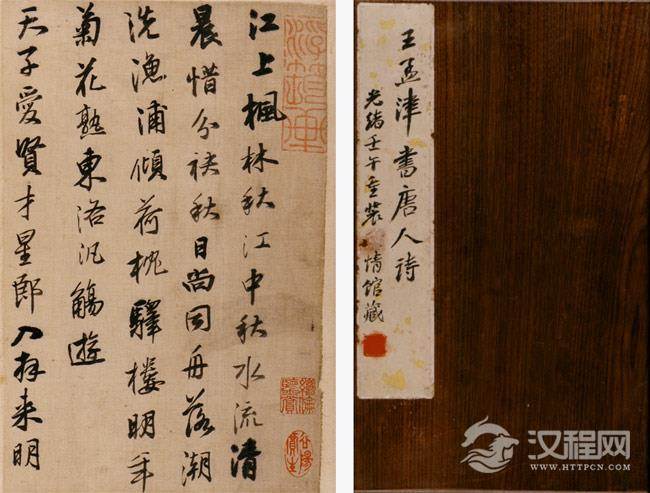 江上楓林秋江中秋水流清
晨惜分袂秋日尚同舟落潮
洗漁浦傾荷枕驛樓明年
菊花熟東洛汎觴遊
天子愛賢才星郎入拜来明
王孟津書唐人詩
光緒壬午重裝 情馆藏
汉程网
WWW.HTTPCN.COM